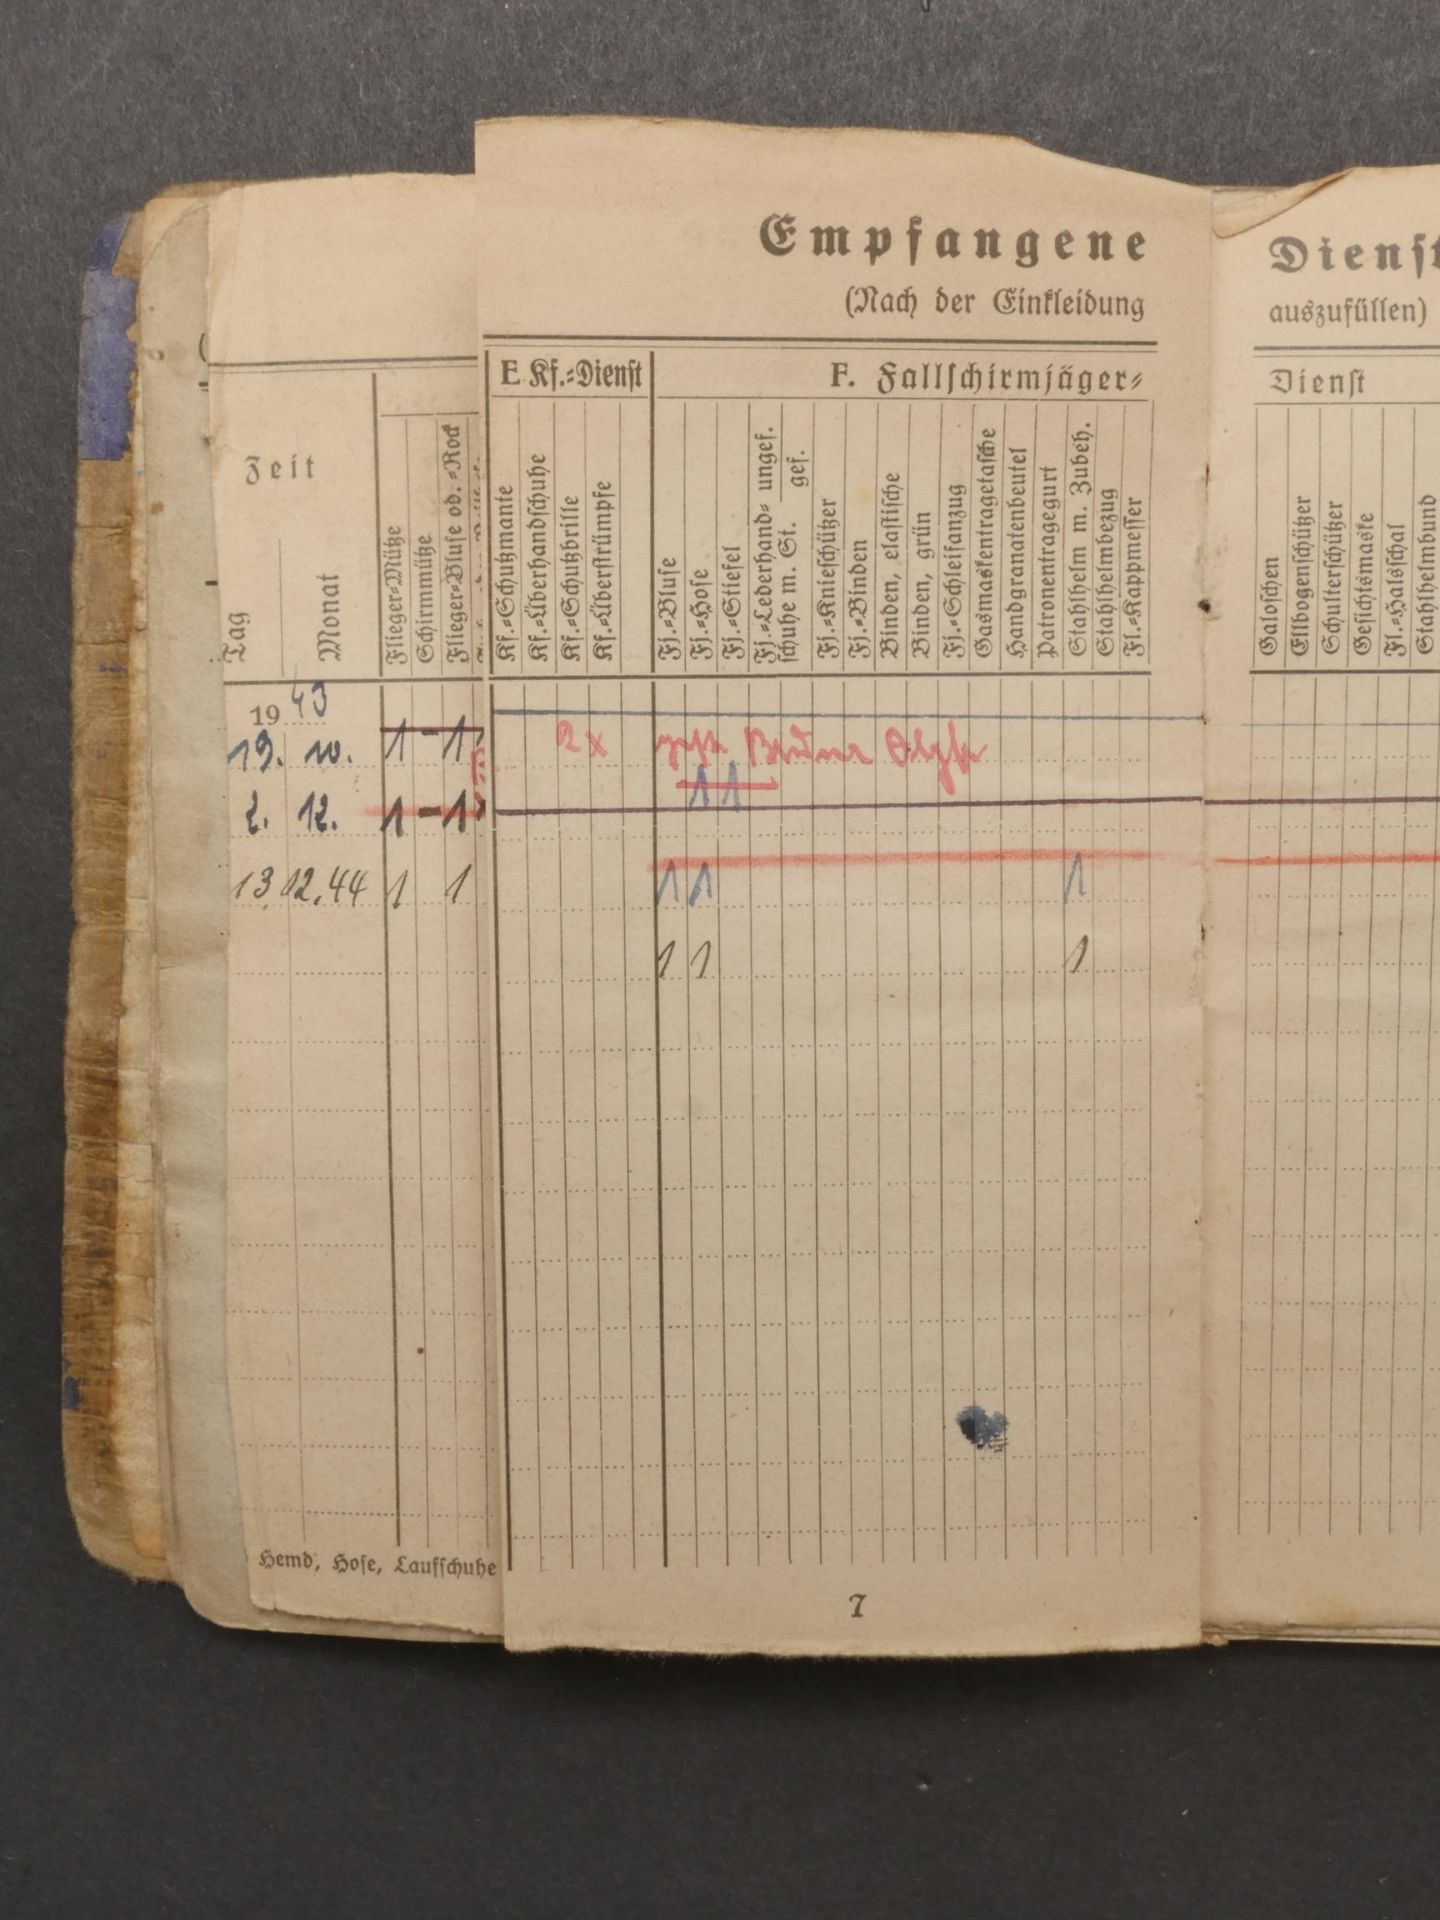 Empfangene
(Nach der Einkleidung
Dienst
auszufüllen)
E Kf.=Dienst
F. Fallschirmjäger=
Dienst
Zeit
Tag
Monat
Flieger=Mütze
Schirmmütze
Flieger=Bluse od. =Rock
Kf.=Schutzmante
Kf.=Überhandschuhe
Kf.=Schutzbrille
Kf.=Überstrümpfe
Fj.=Bluse
Fj.=Hose
Fj.=Stiefel
Fj.=Lederhand= ungef.
schuhe m. St. gef.
Fj.=Knieschützer
Fj.=Binden
Binden, elastische
Binden, grün
Fj.=Schleifanzug
Gasmaskentragetasche
Handgranatenbeutel
Patronentragegurt
Stahlhelm m. Zubeh.
Stahlhelmbezug
Fl.=Kappmesser
Galoschen
Ellbogenschützer
Schulterschützer
Gesichtsmaske
Fl.=Halsschal
Stahlhelmbund
19 43
19. 10. 1 - 1 2x
1 1
2. 12. 1 - 1
13. 12. 44 1 1 1 1 1
1 1 1
Hemd, Hose, Laufschuhe
7